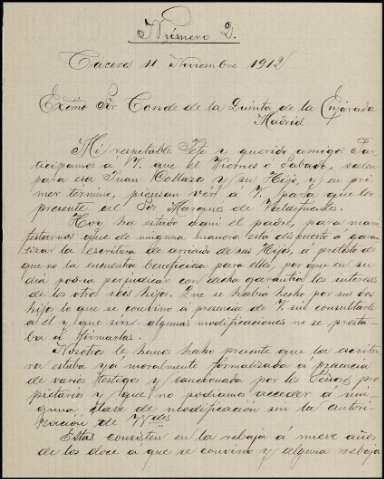 Número 2.
Cáceres 11 Noviembre 1912
Exmo Sor Conde de la Quinta de la Enjarada
Madrid
Mi respetable Jefe y querido amigo: Par-
ticipamos a V. que el Viernes o Sabado, salen
para esa Juan Collazo y su Hijo, y en pri
mer termino, precisan ver á V. para que los
presente al Sor Marques de
Hoy ha estado aqui el padre, para mani
festarnos que de ninguna manera esta dispuesto á garan
tizar la escritura de arriendo de sus Hijos, á pretesto de
que no la encuentra beneficiosa para ellos, y por que en su
dia podria perjudicar con dicha garantia los intereses
de los otros sus hijos. Que se habia hecho por sus dos
hijos lo que se convino a presencia de V. sin consultarle
á él y que sin algunas modificaciones no se presta-
ba á firmarlas.
Nosotros le hemos hecho presente que la escritu
ra estaba ya moralmente formalizada á presencia
de varios testigos y sancionada por los Señores pro
pietarios y que no podiamos acceder a nin-
guna clase de modificacion sin la autori
zacion de Vdes
Estas consisten en la rebaja á nueve años
de los doce a que se convino y alguna rebaja